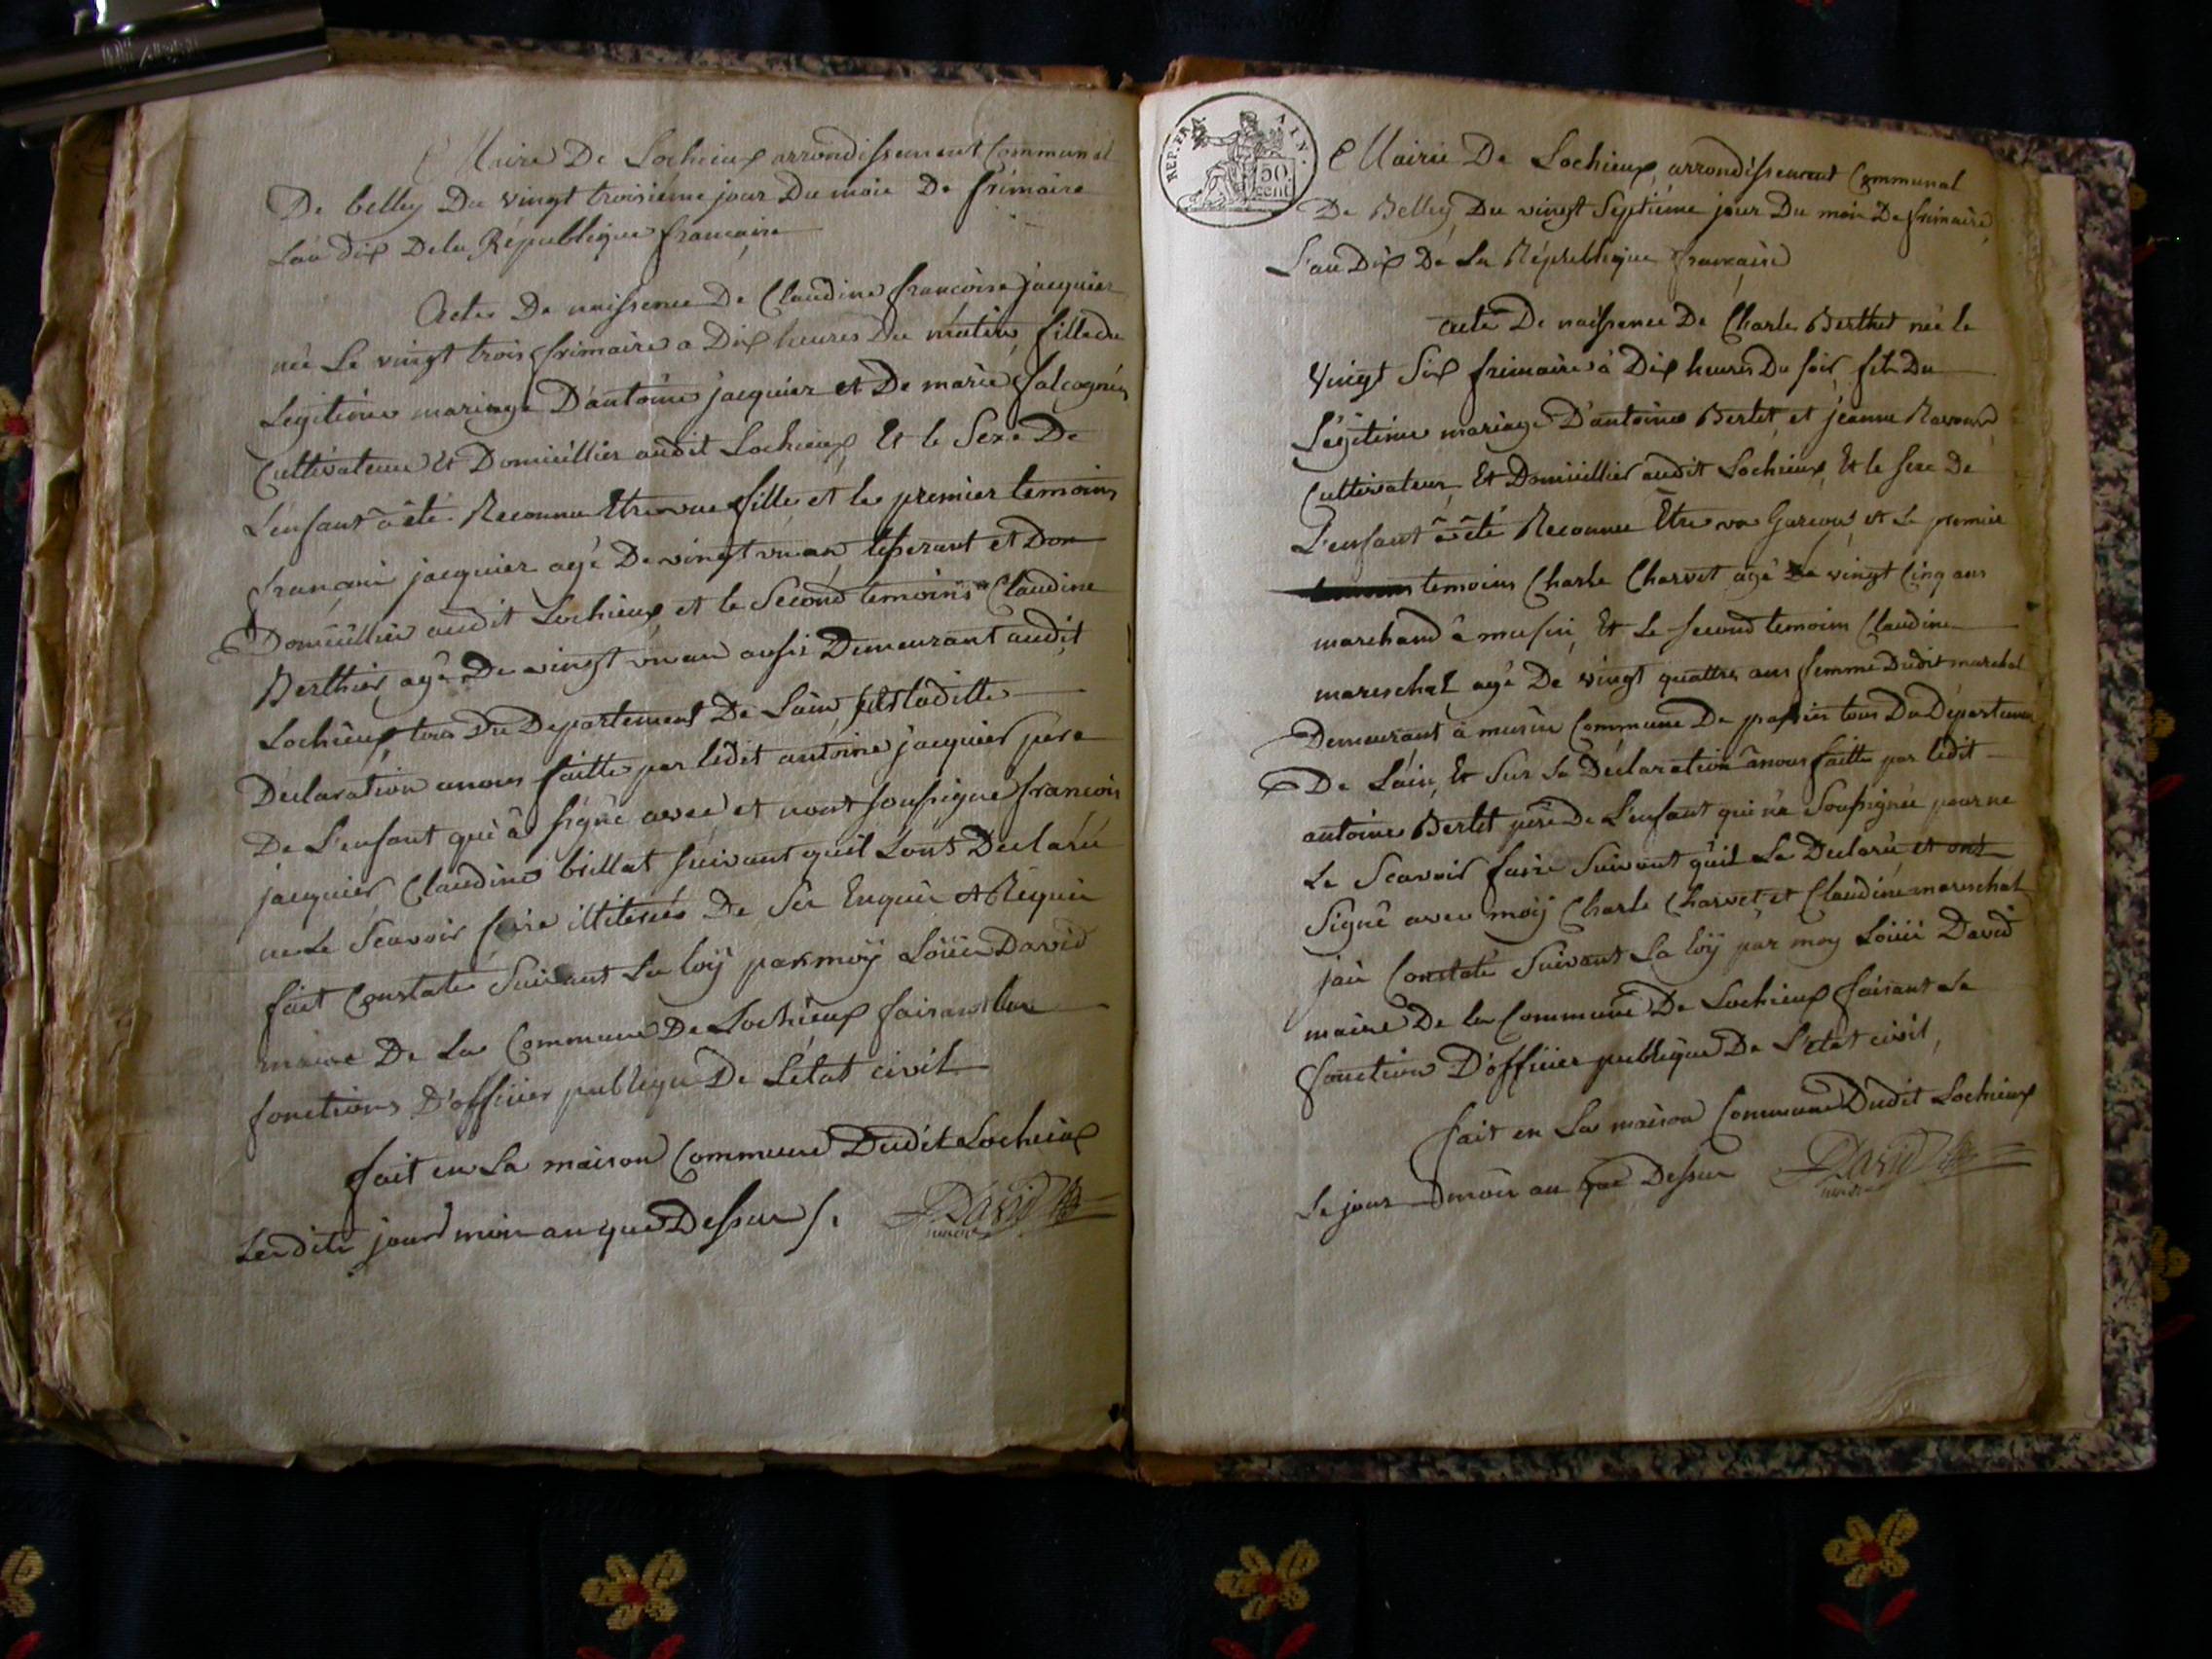 Mairie De Lochieux arrondissement Communal
De belley Du vingt troisieme jour Du mois De frimaire
L'an dix De la Republique francaise
Acte De naissence De Claudine francoise jacquier
née Le vingt trois frimaire a Dix heures Du matin, fille du
Legitime mariage D'antoine jacquier et De marie falcognié
Cultivateur Et Domicillier audit Lochieux Et le Sexe De
L'enfant à été Reconnu Etre une fille et le premier temoins
francois jacquier agé De vingt un an, tisserant et Dom
Domicillier audit Lochieux et le Second temoins Claudine
Berthier agé De vingt un an aussi Demeurant audit
Lochieux, tous Du Departement De Lain, sur laditte
Declaration a nous faitte par ledit antoine jacquier pere
De L'enfant qui à signé avec et nont soussigne francois
jacquier Claudine billat suivant quil Lonts Declaré
ne Le Scavoir faire illiterés De Ser Enquis et Requis
fait Constaté Suivant La loÿ par moÿ Loüis David
maire De La Commune De Lochieux faisant les
fonctions D'officier publique De L'état civil
fait en La maison Commune Dudit Lochieux
Lesdits jour mois an que Dessus /.
David
maire
REP. FRA
AIN.
50
cent
Mairie De Lochieux, arrondissement Communal
De Belley, Du vingt Septieme jour Du mois De frimaire
L'an Dix De La Republique francaise
acte De naissence De Charle Berthet née le
vingt Six frimaire à Dix heures Du soir, fils Du
Légitime mariage D'antoine Berlet, et jeanne Ravour
Cultivateur, Et Domicillier audit Lochieux, Et le sexe De
L'enfant à été Reconnue Etre un Garcon, et Le premier
temoins Charle Charvet agé De vingt Cinq ans
marchand à musin, Et Le second temoins Claudine
mareschal agé De vingt quattre ans femme Dudit marchal
Demeurant à musin Commune De passin tous Du Départemen
De Lain, Et Sur La Déclaration à nous faitte par ledit
antoine Berlet père De L'enfant qui na Soussignée pour ne
Le Scavoir faire Suivant quil La Declaré, et ont
Signé avec moÿ Charle Charvet, et Claudine mareschal
jai Constaté Suivant La loÿ par moy Loüis David
maire De la Commune De Lochieux faisant La
fonction D'officier publique De L'etat civil,
fait en La maison Commune Dudit Lochieux
Le jour mois an que Dessus
David
maire